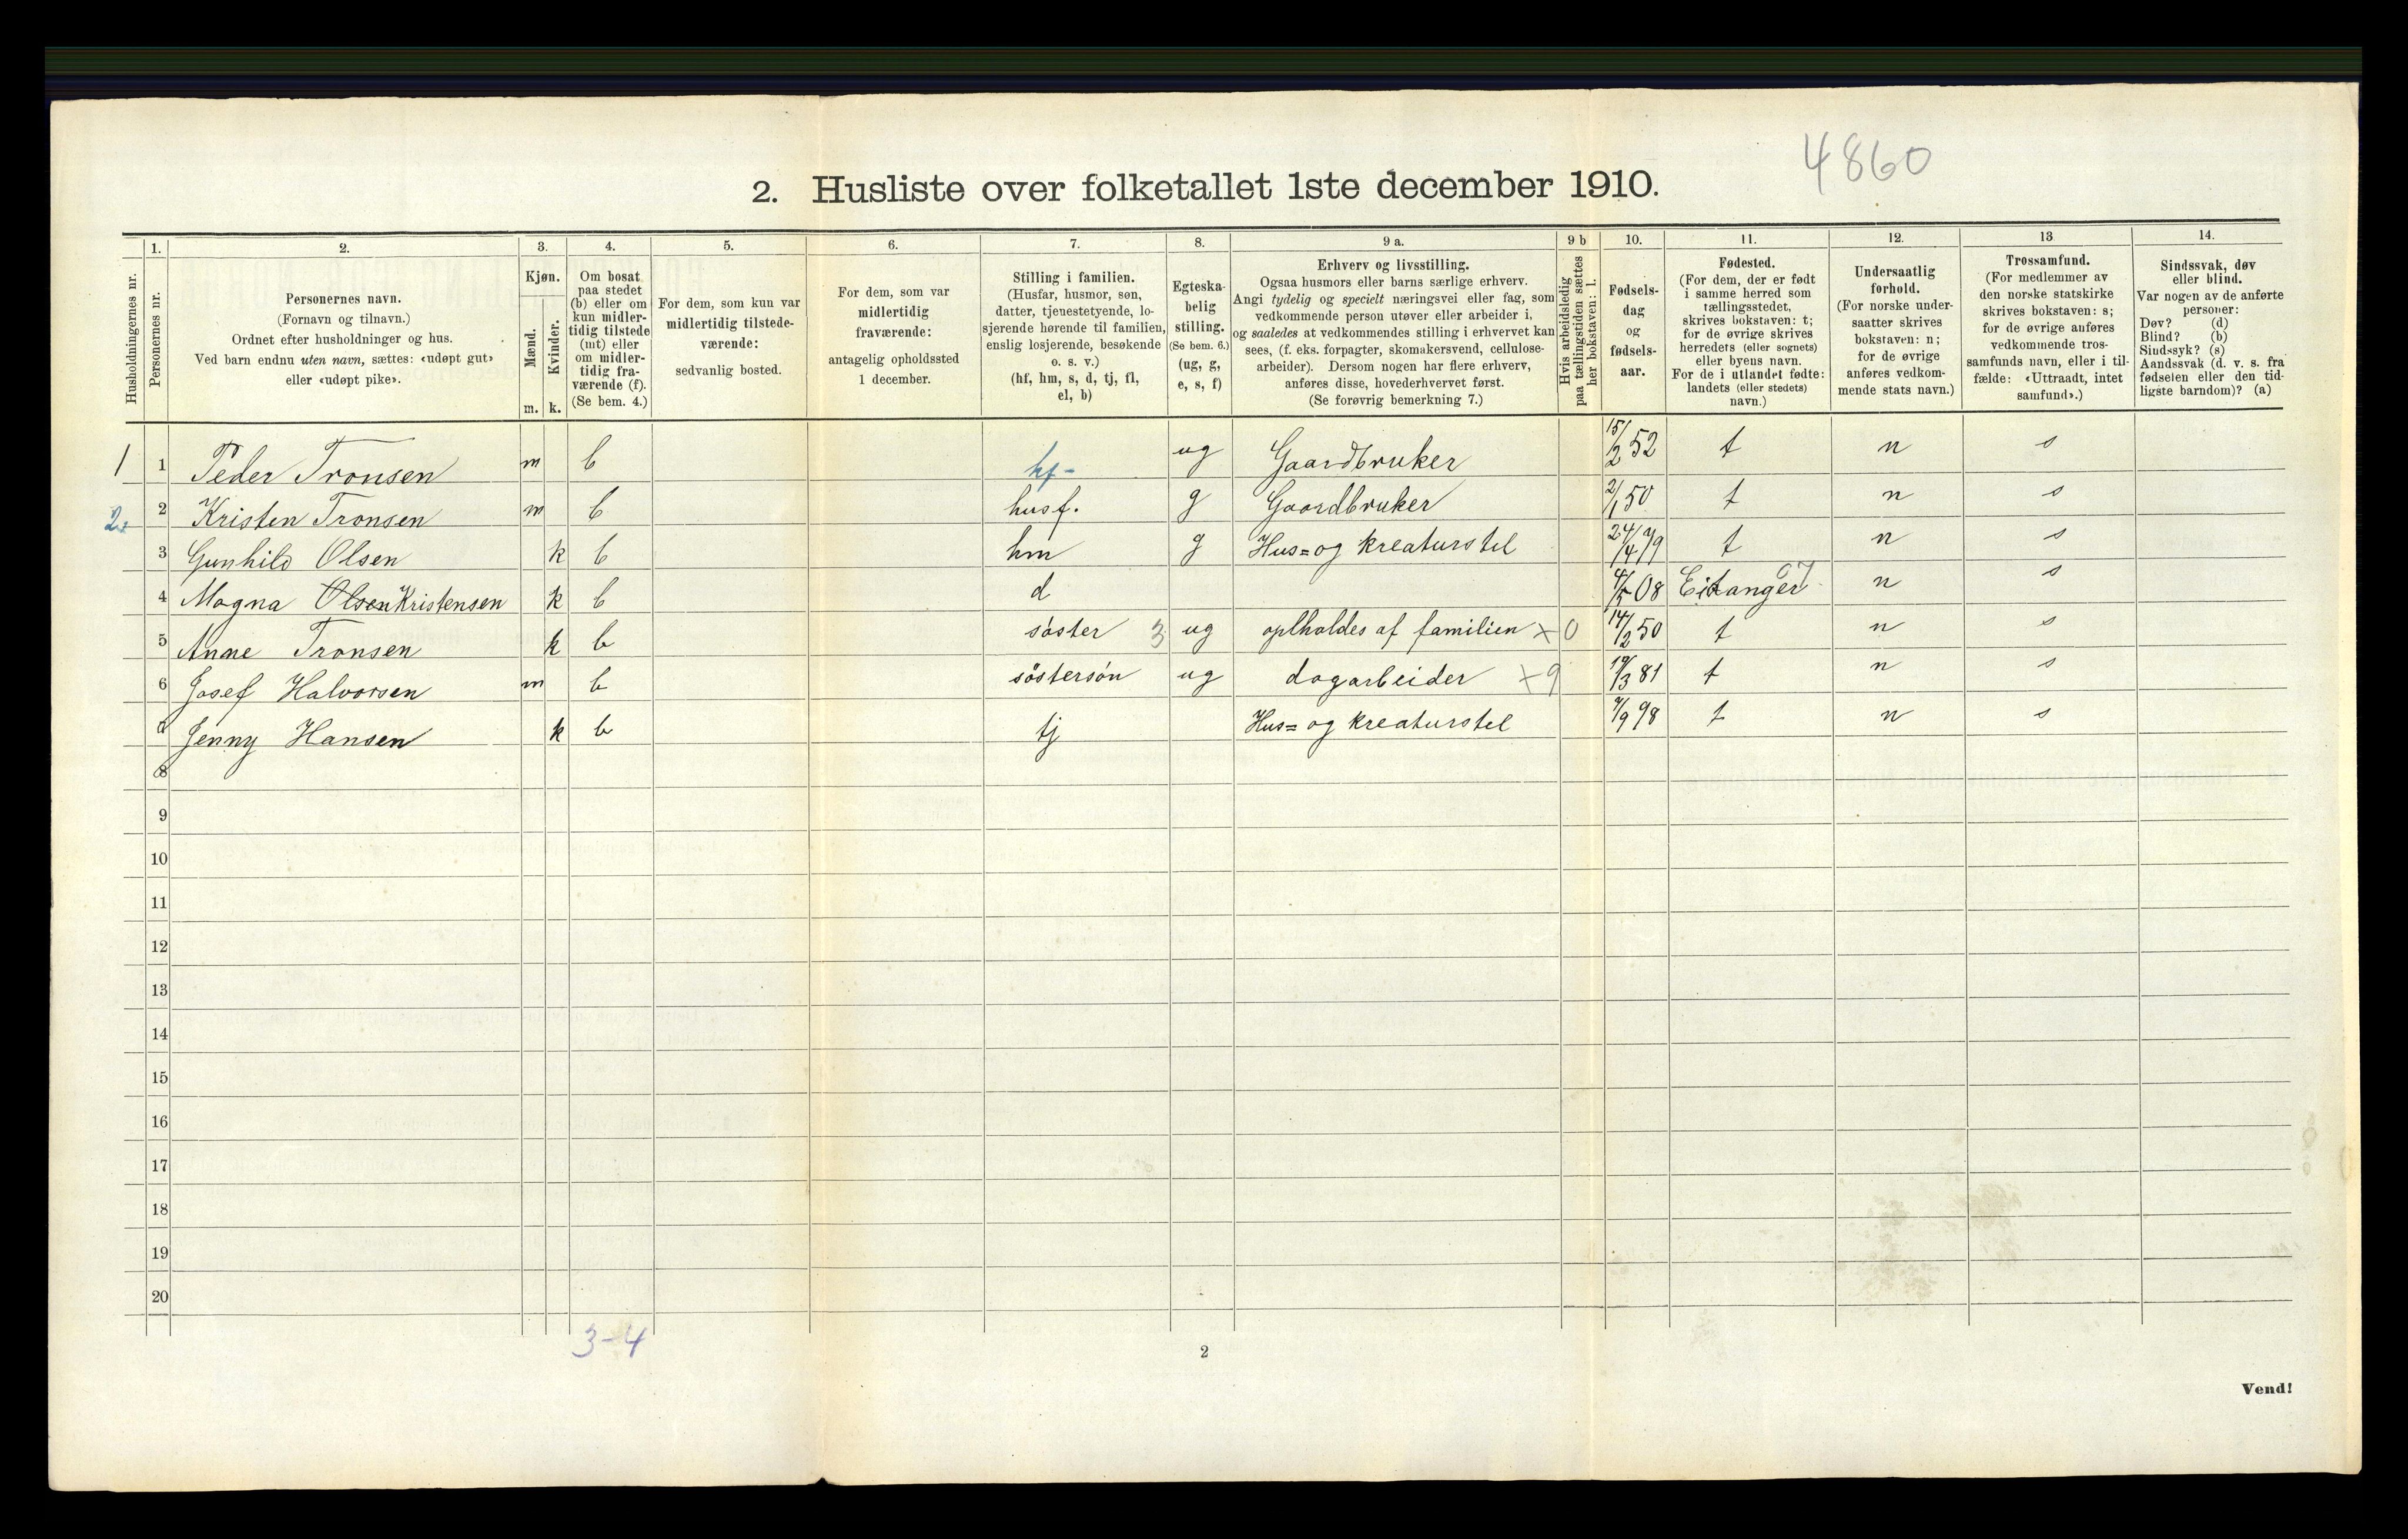 4860
2. Husliste over folketallet 1ste december 1910.
Husholdningernes nr.
1.
Personernes nr.
2.
Personernes navn.
(Fornavn og tilnavn.)
Ordnet efter husholdninger og hus.
Ved barn endnu uten navn, sættes: «udøpt gut»
eller «udøpt pike».
3.
Kjøn.
Mænd.
Kvinder.
m. k.
4.
Om bosat
paa stedet
(b) eller om
kun midler-
tidig tilstede
(mt) eller
om midler-
tidig fra-
værende (f).
(Se bem. 4.)
5.
For dem, som kun var
midlertidig tilstede-
værende:
sedvanlig bosted.
6.
For dem, som var
midlertidig
fraværende:
antagelig opholdssted
1 december.
7.
Stilling i familien.
(Husfar, husmor, søn,
datter, tjenestetyende, lo-
sjerende hørende til familien,
enslig losjerende, besøkende
o. s. v.)
(hf, hm, s, d, tj, fl,
el, b)
8.
Egteska-
belig
stilling.
(Se bem. 6.)
(ug, g,
e, s, f)
9 a.
Erhverv og livsstilling.
Ogsaa husmors eller barns særlige erhverv.
Angi tydelig og specielt næringsvei eller fag, som
vedkommende person utøver eller arbeider i,
og saaledes at vedkommendes stilling i erhvervet kan
sees, (f. eks. forpagter, skomakersvend, cellulose-
arbeider). Dersom nogen har flere erhverv,
anføres disse, hovederhvervet først.
(Se forøvrig bemerkning 7.)
9 b
Hvis arbeidsledig
paa tællingstiden sættes
her bokstaven: l.
10.
Fødsels-
dag
og
fødsels-
aar.
11.
Fødested.
(For dem, der er født
i samme herred som
tællingsstedet,
skrives bokstaven: t;
for de øvrige skrives
herredets (eller sognets)
eller byens navn.
For de i utlandet fødte:
landets (eller stedets)
navn.)
12.
Undersaatlig
forhold.
(For norske under-
saatter skrives
bokstaven: n;
for de øvrige
anføres vedkom-
mende stats navn.)
13
Trossamfund.
(For medlemmer av
den norske statskirke
skrives bokstaven: s;
for de øvrige anføres
vedkommende tros-
samfunds navn, eller i til-
fælde: «Uttraadt, intet
samfund».)
14.
Sindssvak, døv
eller blind.
Var nogen av de anførte
personer:
Døv? (d)
Blind? (b)
Sindssyk? (s)
Aandssvak (d. v. s. fra
fødselen eller den tid-
ligste barndom)? (a)
1 1 Peder Tronsen m b hf- ug Gaardbruker 15/2 52 t n s
2. 2 Kristen Tronsen m b husf. g Gaardbruker 2/1 50 t n s
3 Gunhild Olsen k b hm g Hus= og kreaturstel 24/4 79 t n s
4 Magna Olsen Kristensen k b d 4/5 08 Eitanger 07 n s
5 Anne Tronsen k b söster 3 ug oplholdes af familien x 0 14/2 50 t n s
6 Josef Halvorsen m b söstersön ug dagarbeider x 9 19/3 81 t n s
7 Jenny Hansen k b tj Hus= og kreaturstel 7/9 98 t n s
8
9
10
11
12
13
14
15
16
17
18
19
20
3-4
2
Vend!